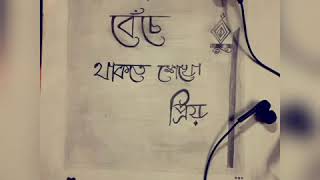 বেঁচে
থাকতে শেখো
প্রিয়